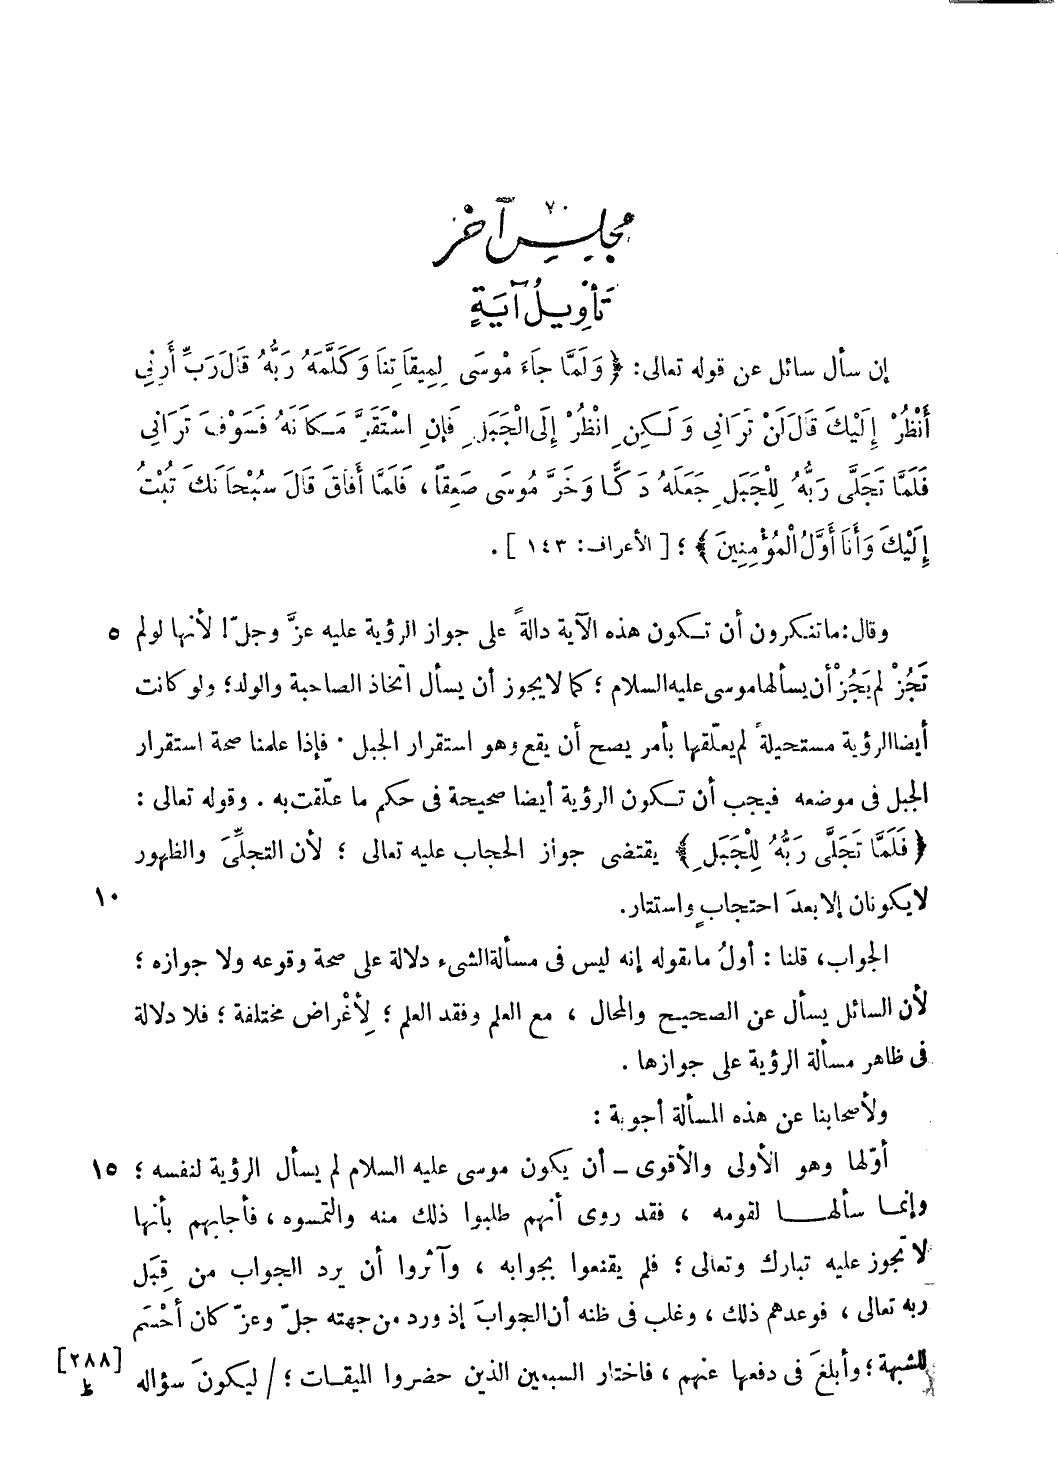 ٧٠
مجلس آخر
تَأْوِيلُ آيَةٍ
إن سأل سائل عن قوله تعالى: ﴿ وَلَمَّا جَاءَ مُوسَى لِمِيقَاتِنَا وَكَلَّمَهُ رَبُّهُ قَالَ رَبِّ أَرِنِي
أَنْظُرْ إِلَيْكَ قَالَ لَنْ تَرَانِي وَلَكِنِ انْظُرْ إِلَى الْجَبَلِ فَإِنِ اسْتَقَرَّ مَكَانَهُ فَسَوْفَ تَرَانِي
فَلَمَّا تَجَلَّى رَبُّهُ لِلْجَبَلِ جَعَلَهُ دَكًّا وَخَرَّ مُوسَى صَعِقاً، فَلَمَّا أَفَاقَ قَالَ سُبْحَانَكَ تُبْتُ
إِلَيْكَ وَأَنَا أَوَّلُ الْمُؤْمِنِينَ ﴾ ؛ [ الأعراف: ١٤٣ ] .
وقال: ماتنكرون أن تكون هذه الآية دالةً على جواز الرؤية عليه عزَّ وجلّ! لأنها لولم ٥
تَجُزْ لم يَجُزْ أن يسألها موسى عليه السلام ؛ كما لا يجوز أن يسأل اتخاذ الصاحبة والولد؛ ولو كانت
أيضا الرؤية مستحيلةً لم يعلّقها بأمر يصح أن يقع وهو استقرار الجبل . فإذا علمنا صحة استقرار
الجبل فى موضعه فيجب أن تكون الرؤية أيضا صحيحة فى حكم ما علّقت به . وقوله تعالى :
﴿ فَلَمَّا تَجَلَّى رَبُّهُ لِلْجَبَلِ ﴾ يقتضى جواز الحجاب عليه تعالى ؛ لأن التجلِّىَ والظهور
لا يكونان إلا بعدَ احتجابٍ واستتار. ١٠
الجواب، قلنا : أولُ ما نقوله إنه ليس فى مسألة الشىء دلالة على صحة وقوعه ولا جوازه ؛
لأن السائل يسأل عن الصحيح والمحال ، مع العلم وفقد العلم ؛ لِأغْراض مختلفة ؛ فلا دلالة
فى ظاهر مسألة الرؤية على جوازها .
ولأصحابنا عن هذه المسألة أجوبة :
أوّلها وهو الأولى والأقوى – أن يكون موسى عليه السلام لم يسأل الرؤية لنفسه ؛ ١٥
وإنما سألها لقومه ، فقد روى أنهم طلبوا ذلك منه والتمسوه، فأجابهم بأنها
لا تجوز عليه تبارك وتعالى ؛ فلم يقنعوا بجوابه ، وآثروا أن يرد الجواب من قِبَل
ربه تعالى ، فوعدهم ذلك ، وغلب فى ظنه أن الجوابَ إذ ورد من جهته جلّ وعزّ كان أحْسَم
للشبهة ؛ وأبلغَ فى دفعها عنهم ، فاختار السبعين الذين حضروا الميقات ؛ / ليكونَ سؤاله [٢٨٨
ظ]